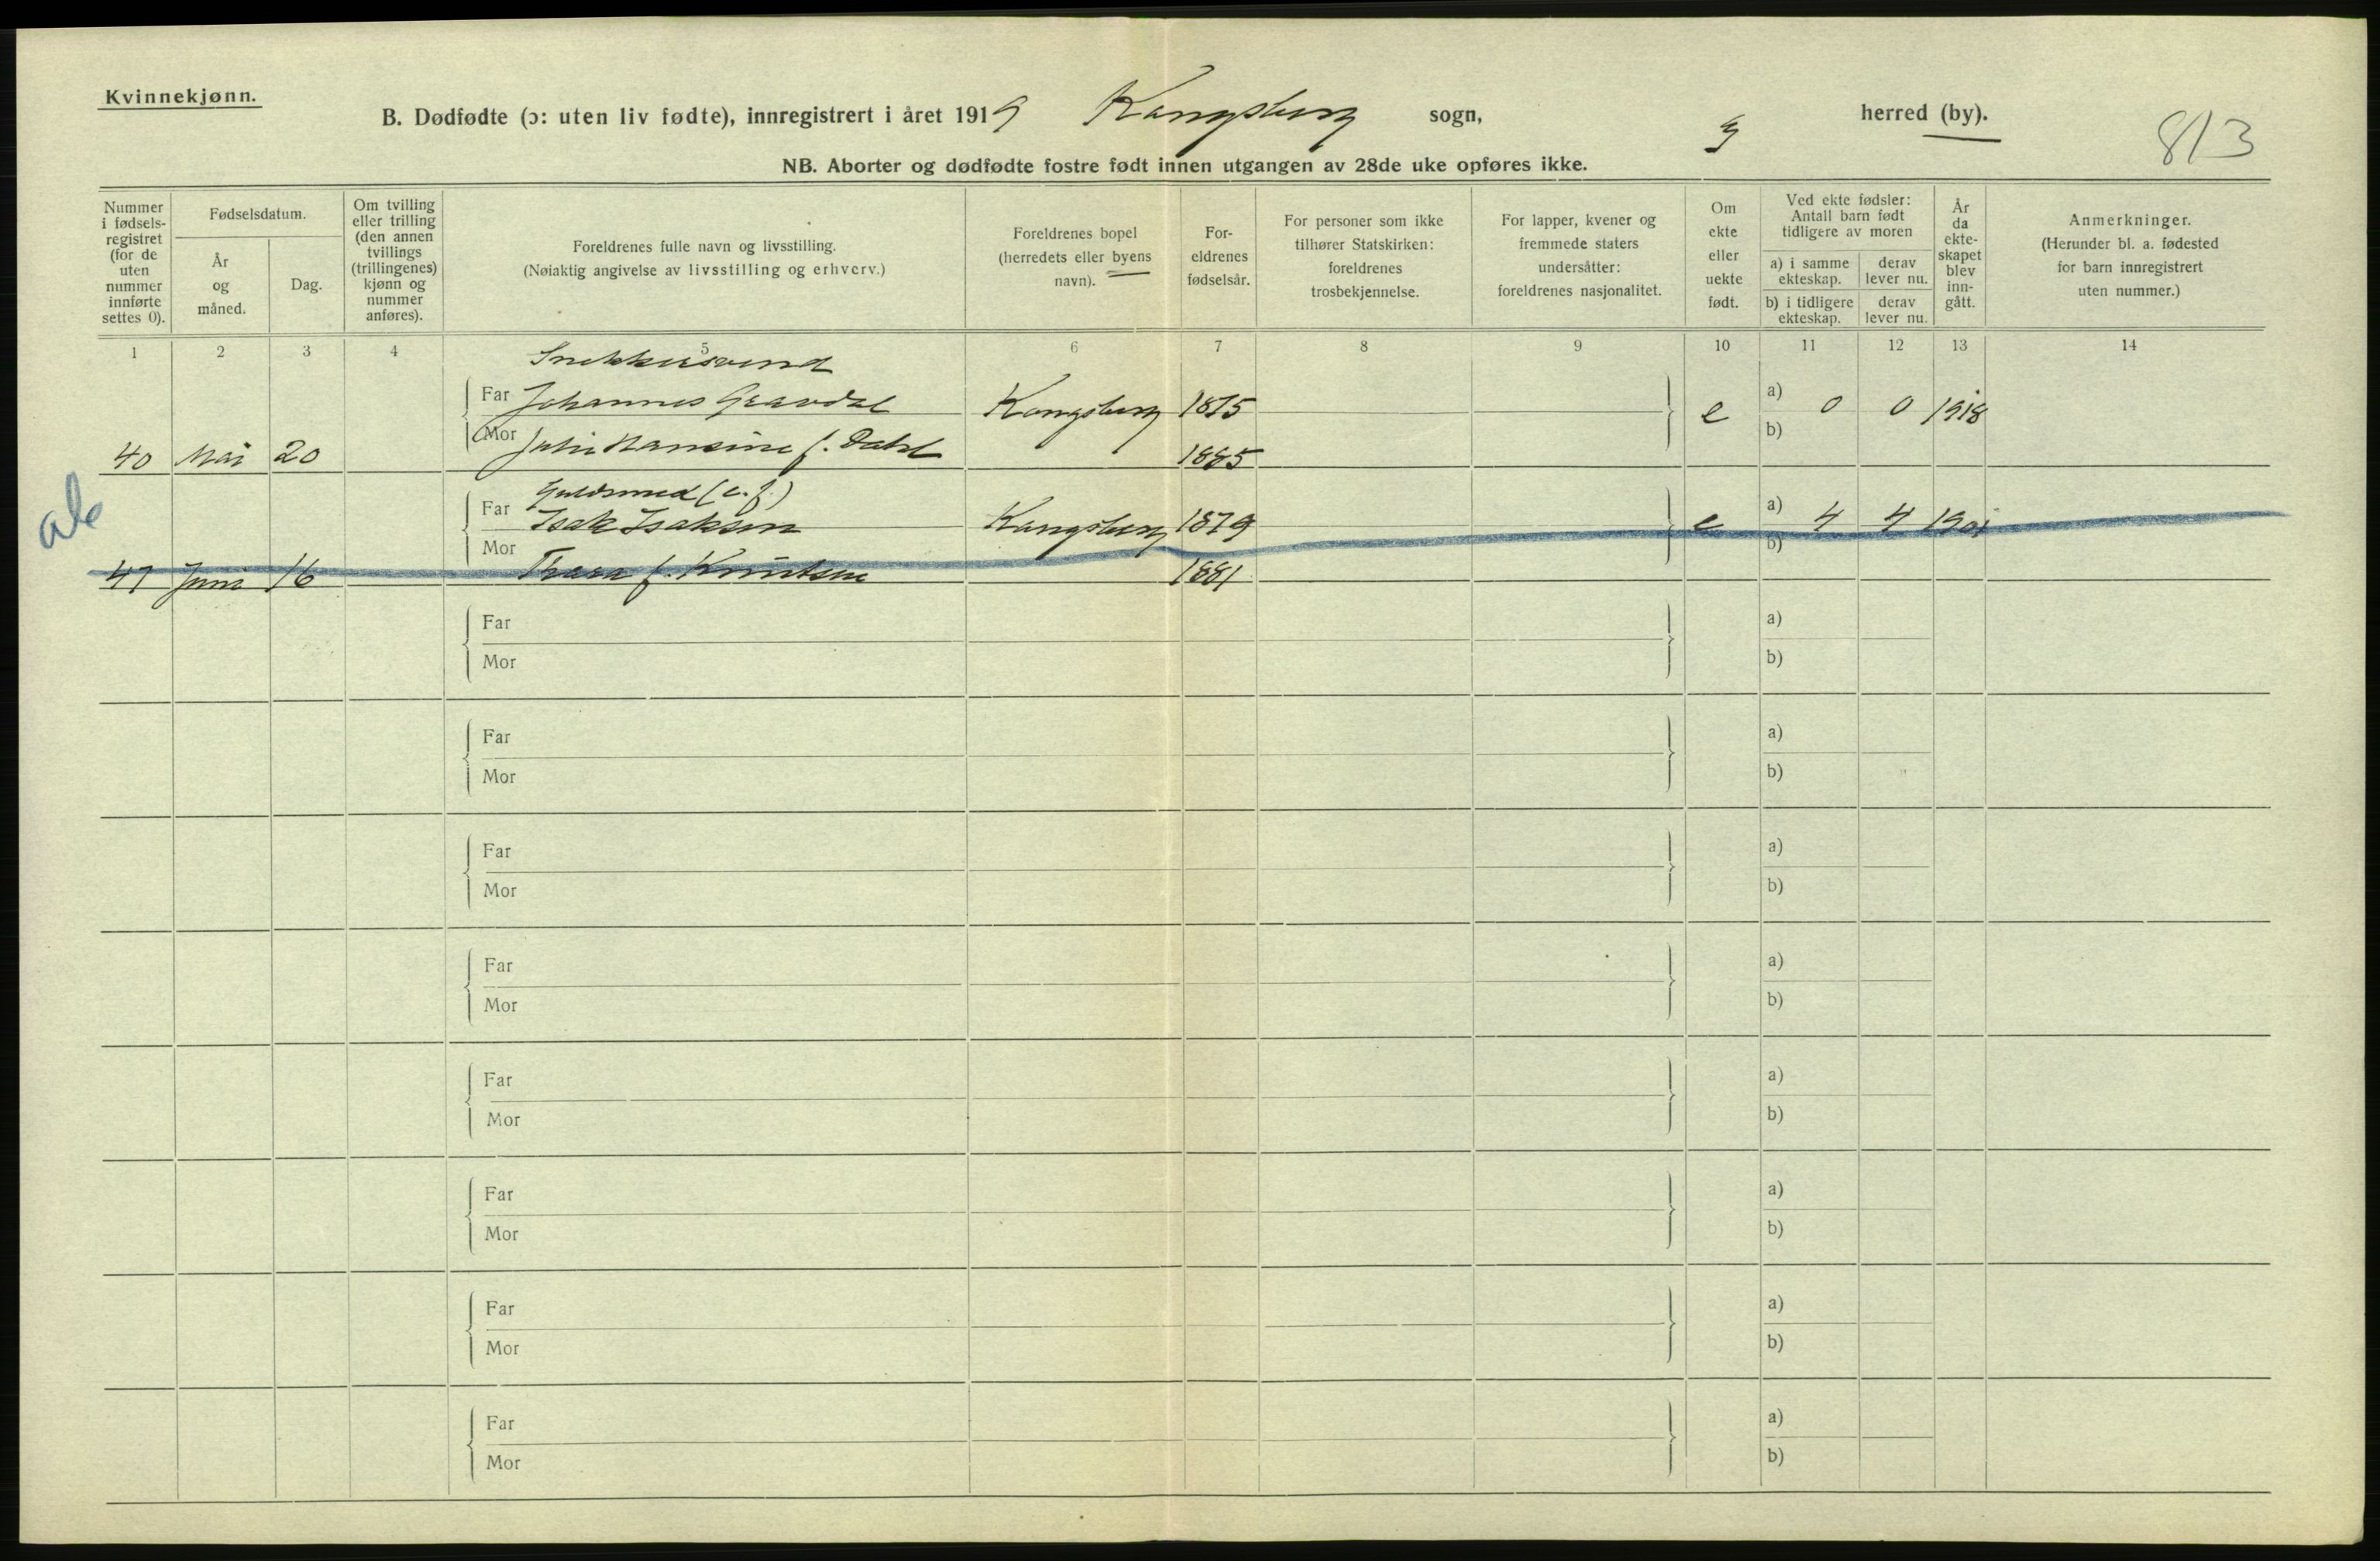 Kvinnekjønn.
B. Dødfødte (ɔ: uten liv fødte), innregistrert i året 1919 Kongsberg sogn, herred (by).
813
NB. Aborter og dødfødte fostre født innen utgangen av 28de uke opføres ikke.
Nummer i fødsels-registret (for de uten nummer innførte settes 0).
Fødselsdatum.
År og måned.
Dag.
Om tvilling eller trilling (den annen tvillings (trillingenes) kjønn og nummer anføres).
Foreldrenes fulle navn og livsstilling.
(Nøiaktig angivelse av livsstilling og erhverv.)
Foreldrenes bopel (herredets eller byens navn).
For-eldrenes fødselsår.
For personer som ikke tilhører Statskirken: foreldrenes trosbekjennelse.
For lapper, kvener og fremmede staters undersåtter: foreldrenes nasjonalitet.
Om ekte eller uekte født.
Ved ekte fødsler: Antall barn født tidligere av moren
a) i samme ekteskap.
derav lever nu.
b) i tidligere ekteskap.
derav lever nu.
År da ekte-skapet blev inn-gått.
Anmerkninger.
(Herunder bl. a. fødested for barn innregistrert uten nummer.)
1 2 3 4 5 6 7 8 9 10 11 12 13 14
Snekkersvend
Far Johannes Gravdal Kongsberg 1875 e a) 0 0 1918
Mor Julie Hansine f. Dahl 1885 b)
40 Mai 20
Guldsmed (e. f.)
Far Isak Isaksen Kongsberg 1879 e a) 4 4 1901
Mor Thora f. Knutsen 1881 b)
47 Juni 16
Far a)
Mor b)
Far a)
Mor b)
Far a)
Mor b)
Far a)
Mor b)
Far a)
Mor b)
Far a)
Mor b)
Far a)
Mor b)
Far a)
Mor b)